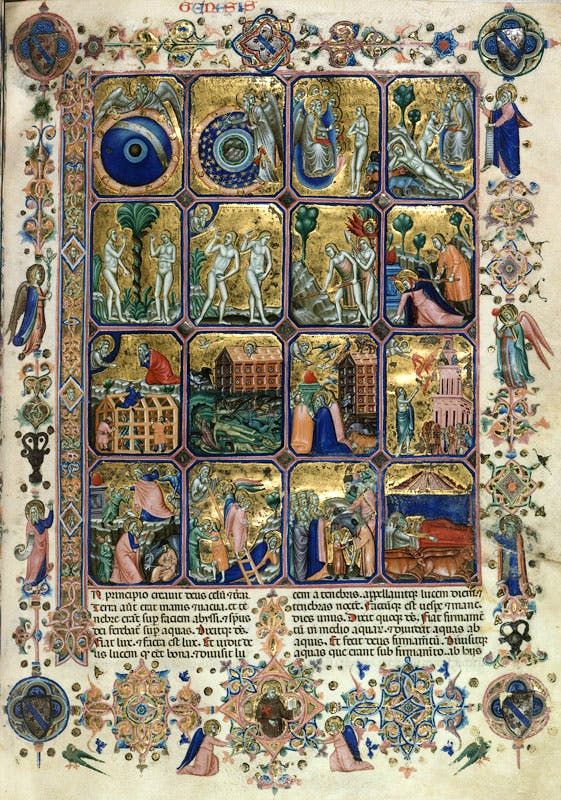 GENESIS
N principio creauit deus celũ ⁊ terr̃ã.
Terra aũt erat inanis ⁊ uacua. et te
nebre erãt sup faciem abyssi. ⁊ spũs
dei ferebat̃ sup aquas. Dixitqꝫ ds̃.
Fiat lux. ⁊ facta est lux. Et uidit de
us lucem ꝙ eẽt bona. ⁊ diuisit lu
cem a tenebris. appellauitqꝫ lucem diem ⁊
tenebras nocte. Factũqꝫ est uespe ⁊ mane
dies unus. Dixit quoqꝫ ds̃. Fiat firmamẽ
tũ in medio aquaꝝ. ⁊ diuidat aquas ab
aquis. Et fecit deus firmamẽtũ. Diuisitqꝫ
aquas que erant sub firmamẽto. ab hiis